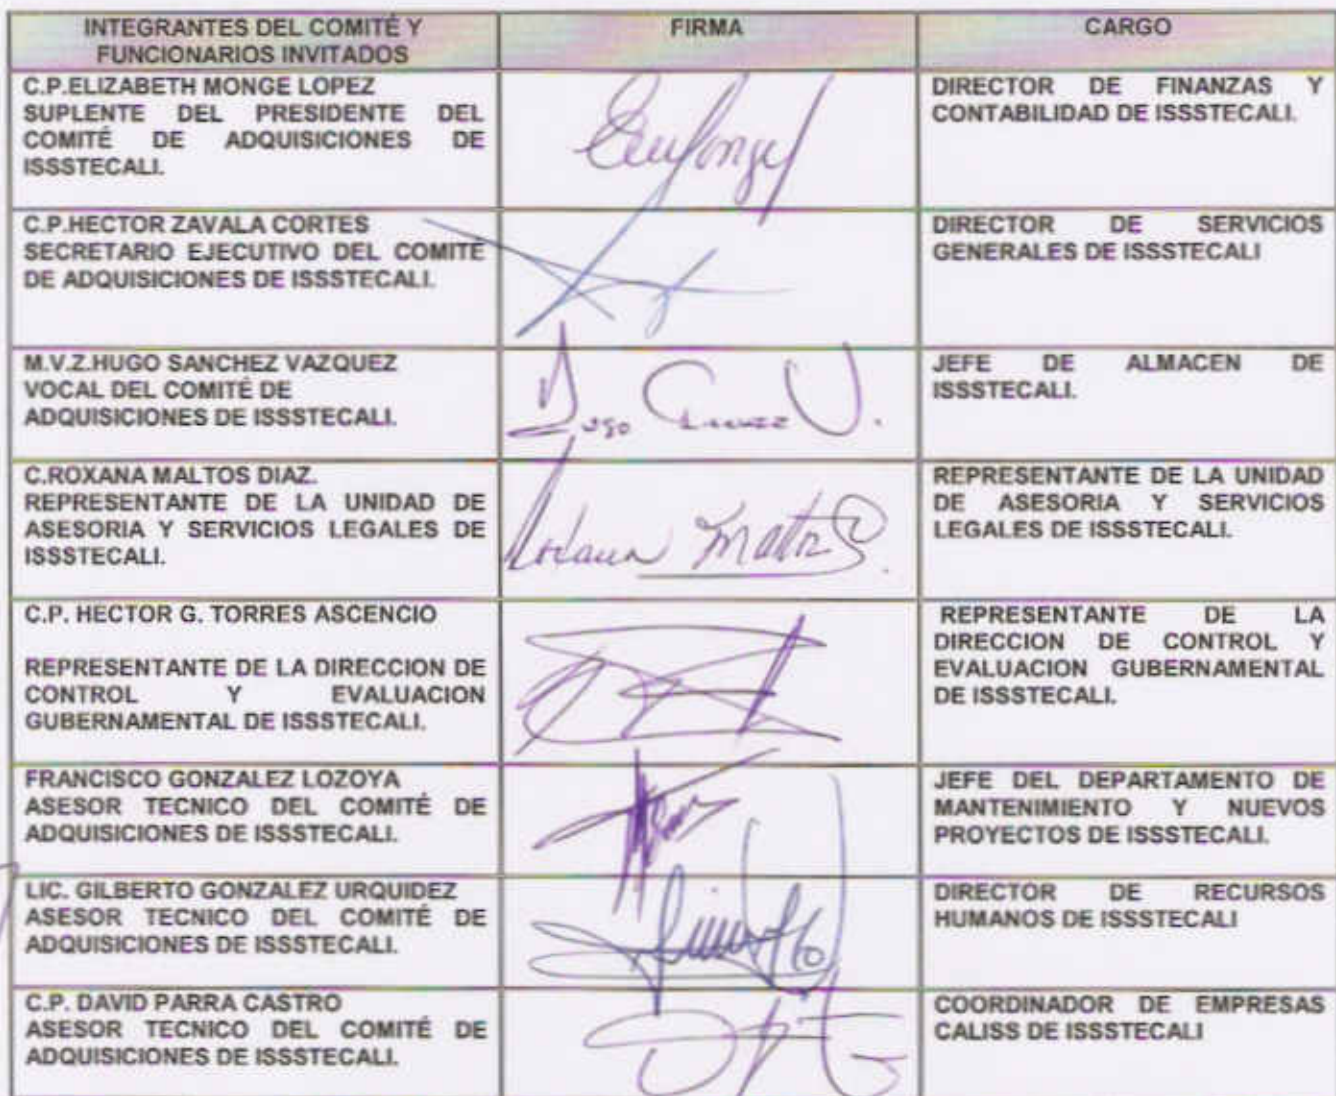 INTEGRANTES DEL COMITÉ Y
FUNCIONARIOS INVITADOS
FIRMA
CARGO
C.P.ELIZABETH MONGE LOPEZ
SUPLENTE DEL PRESIDENTE DEL
COMITÉ DE ADQUISICIONES DE
ISSSTECALI.
DIRECTOR DE FINANZAS Y
CONTABILIDAD DE ISSSTECALI.
C.P.HECTOR ZAVALA CORTES
SECRETARIO EJECUTIVO DEL COMITÉ
DE ADQUISICIONES DE ISSSTECALI.
DIRECTOR DE SERVICIOS
GENERALES DE ISSSTECALI
M.V.Z.HUGO SANCHEZ VAZQUEZ
VOCAL DEL COMITÉ DE
ADQUISICIONES DE ISSSTECALI.
JEFE DE ALMACEN DE
ISSSTECALI.
C.ROXANA MALTOS DIAZ.
REPRESENTANTE DE LA UNIDAD DE
ASESORIA Y SERVICIOS LEGALES DE
ISSSTECALI.
REPRESENTANTE DE LA UNIDAD
DE ASESORIA Y SERVICIOS
LEGALES DE ISSSTECALI.
C.P. HECTOR G. TORRES ASCENCIO
REPRESENTANTE DE LA DIRECCION DE
CONTROL Y EVALUACION
GUBERNAMENTAL DE ISSSTECALI.
REPRESENTANTE DE LA
DIRECCION DE CONTROL Y
EVALUACION GUBERNAMENTAL
DE ISSSTECALI.
FRANCISCO GONZALEZ LOZOYA
ASESOR TECNICO DEL COMITÉ DE
ADQUISICIONES DE ISSSTECALI.
JEFE DEL DEPARTAMENTO DE
MANTENIMIENTO Y NUEVOS
PROYECTOS DE ISSSTECALI.
LIC. GILBERTO GONZALEZ URQUIDEZ
ASESOR TECNICO DEL COMITÉ DE
ADQUISICIONES DE ISSSTECALI.
DIRECTOR DE RECURSOS
HUMANOS DE ISSSTECALI
C.P. DAVID PARRA CASTRO
ASESOR TECNICO DEL COMITÉ DE
ADQUISICIONES DE ISSSTECALI.
COORDINADOR DE EMPRESAS
CALISS DE ISSSTECALI